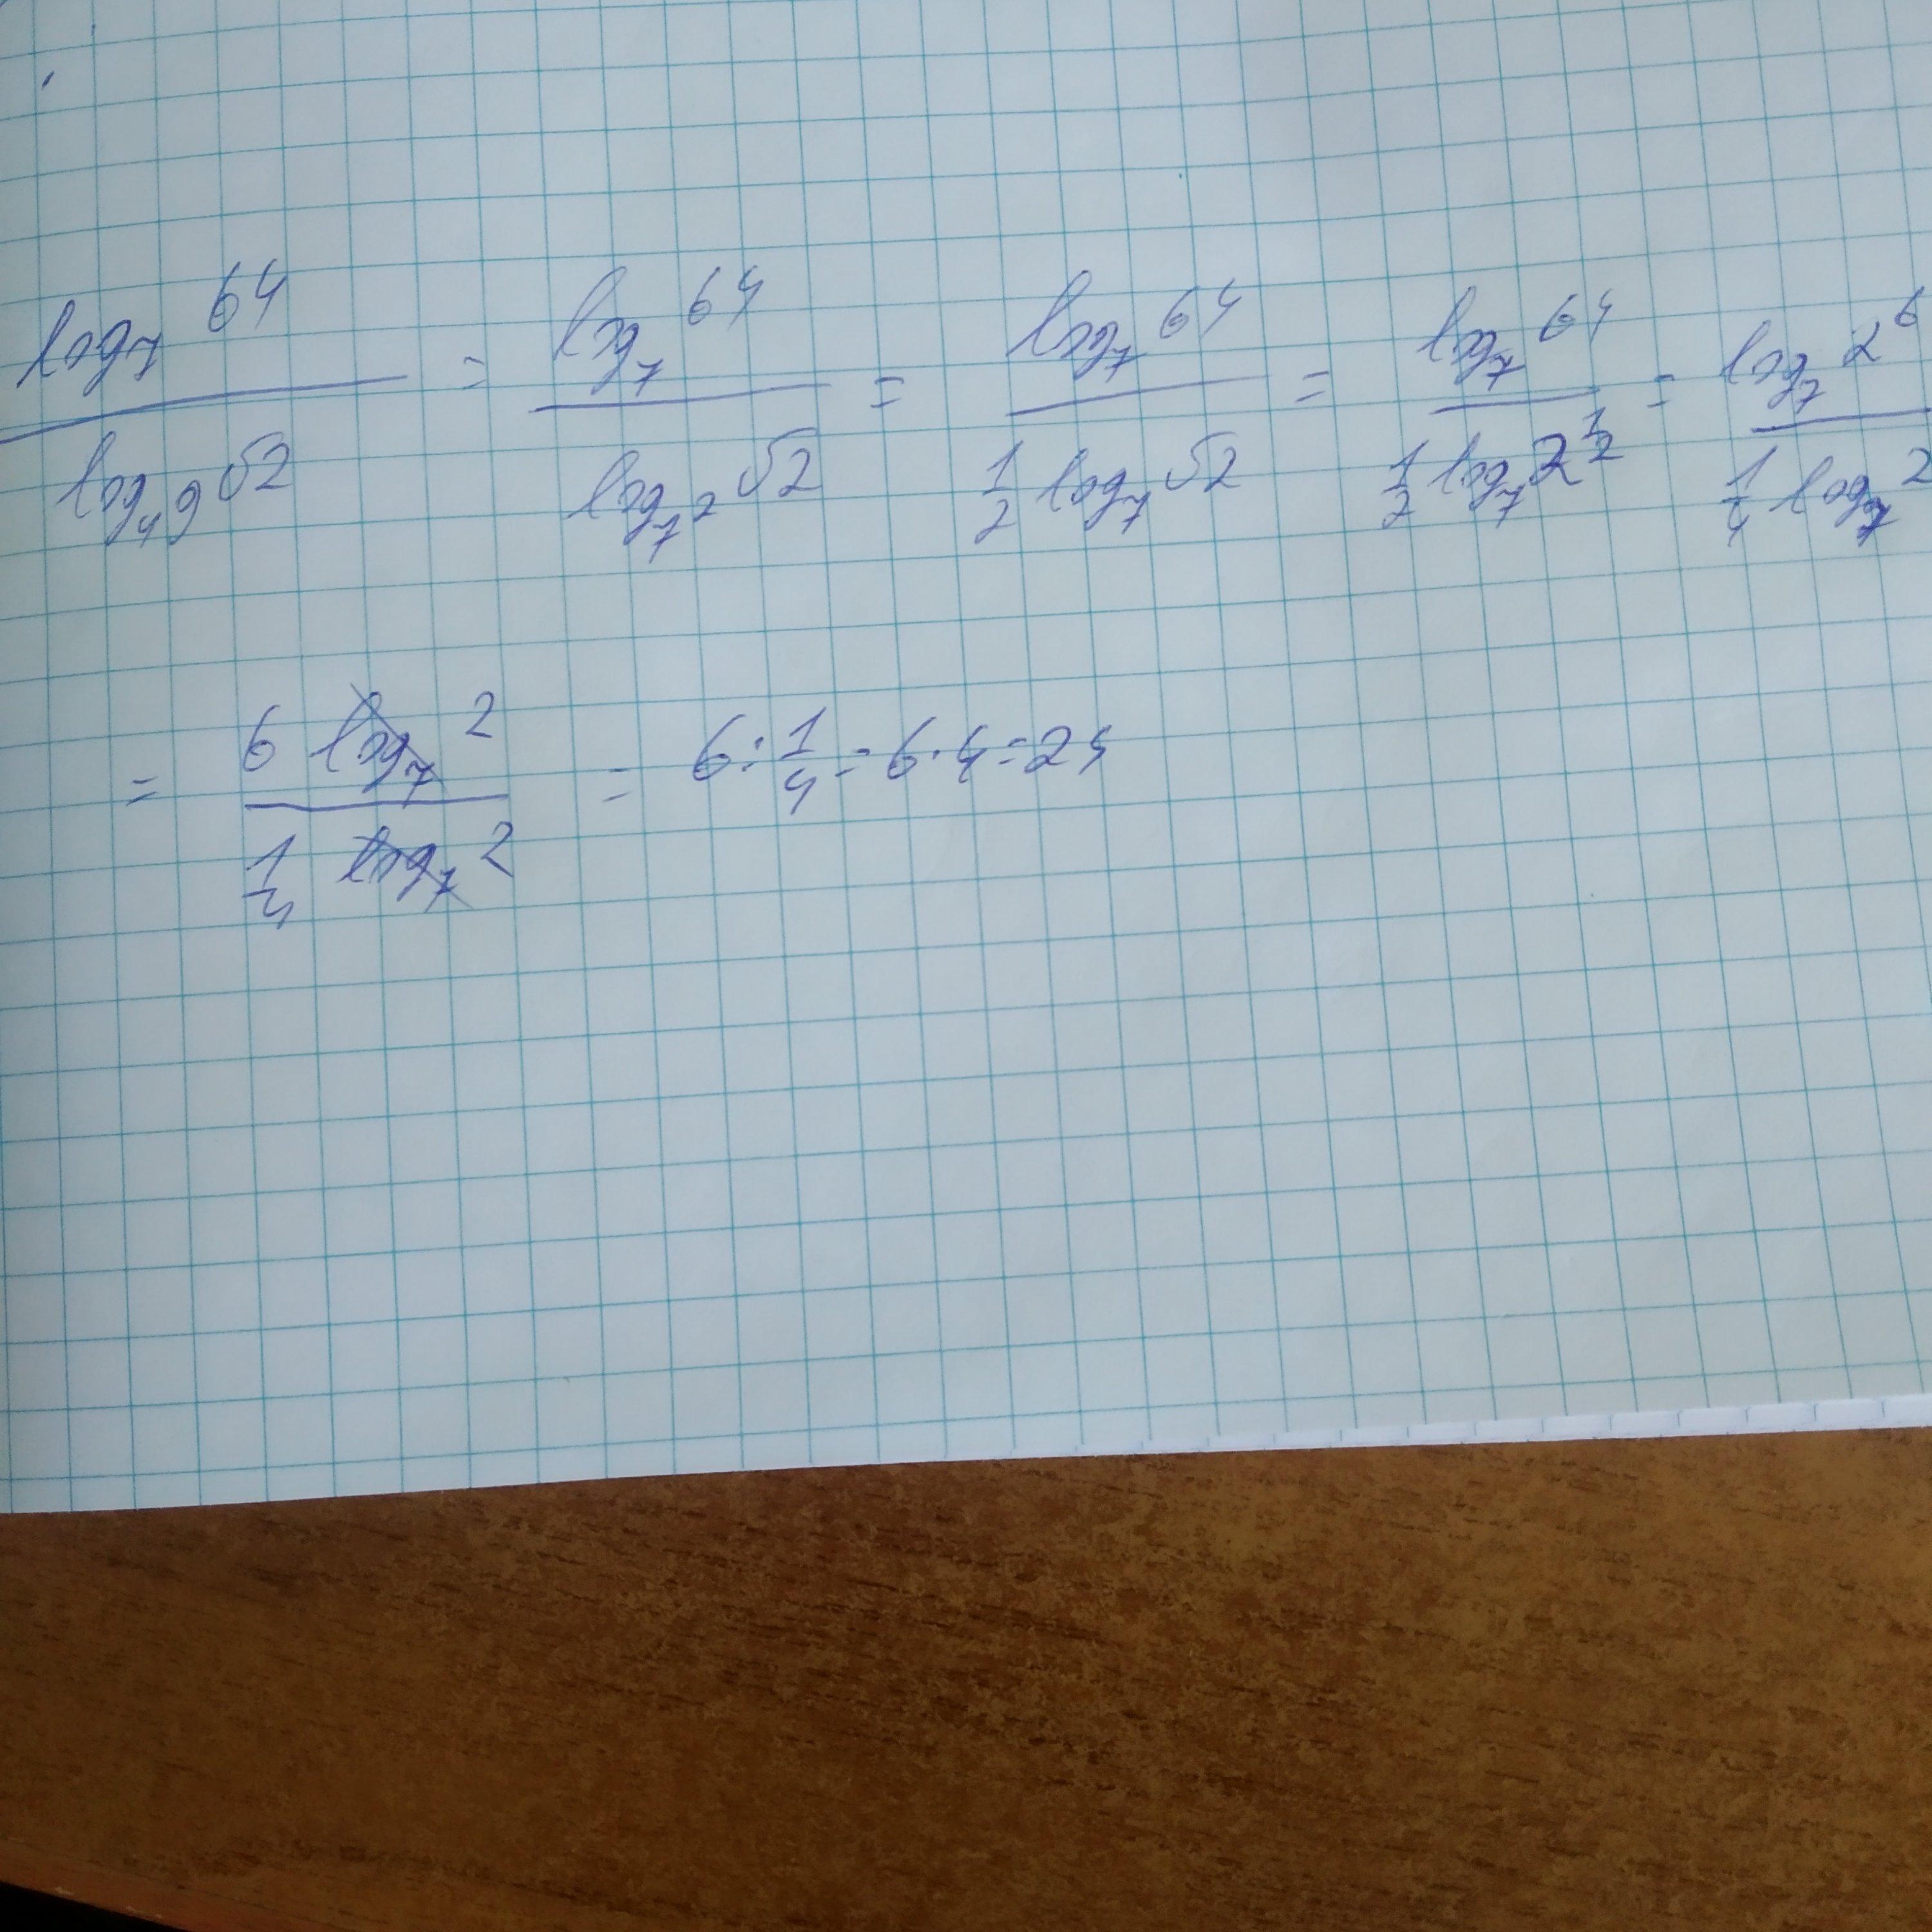 log₇ 64 / log₄₉ √2 = log₇ 64 / log₇² √2 = log₇ 64 / 1/2 log₇ √2 = log₇ 64 / 1/2 log₇ 2^1/2 = log₇ 2⁶ / 1/4 log₇ 2
= 6 log₇ 2 / 1/4 log₇ 2 = 6 : 1/4 = 6 · 4 = 24